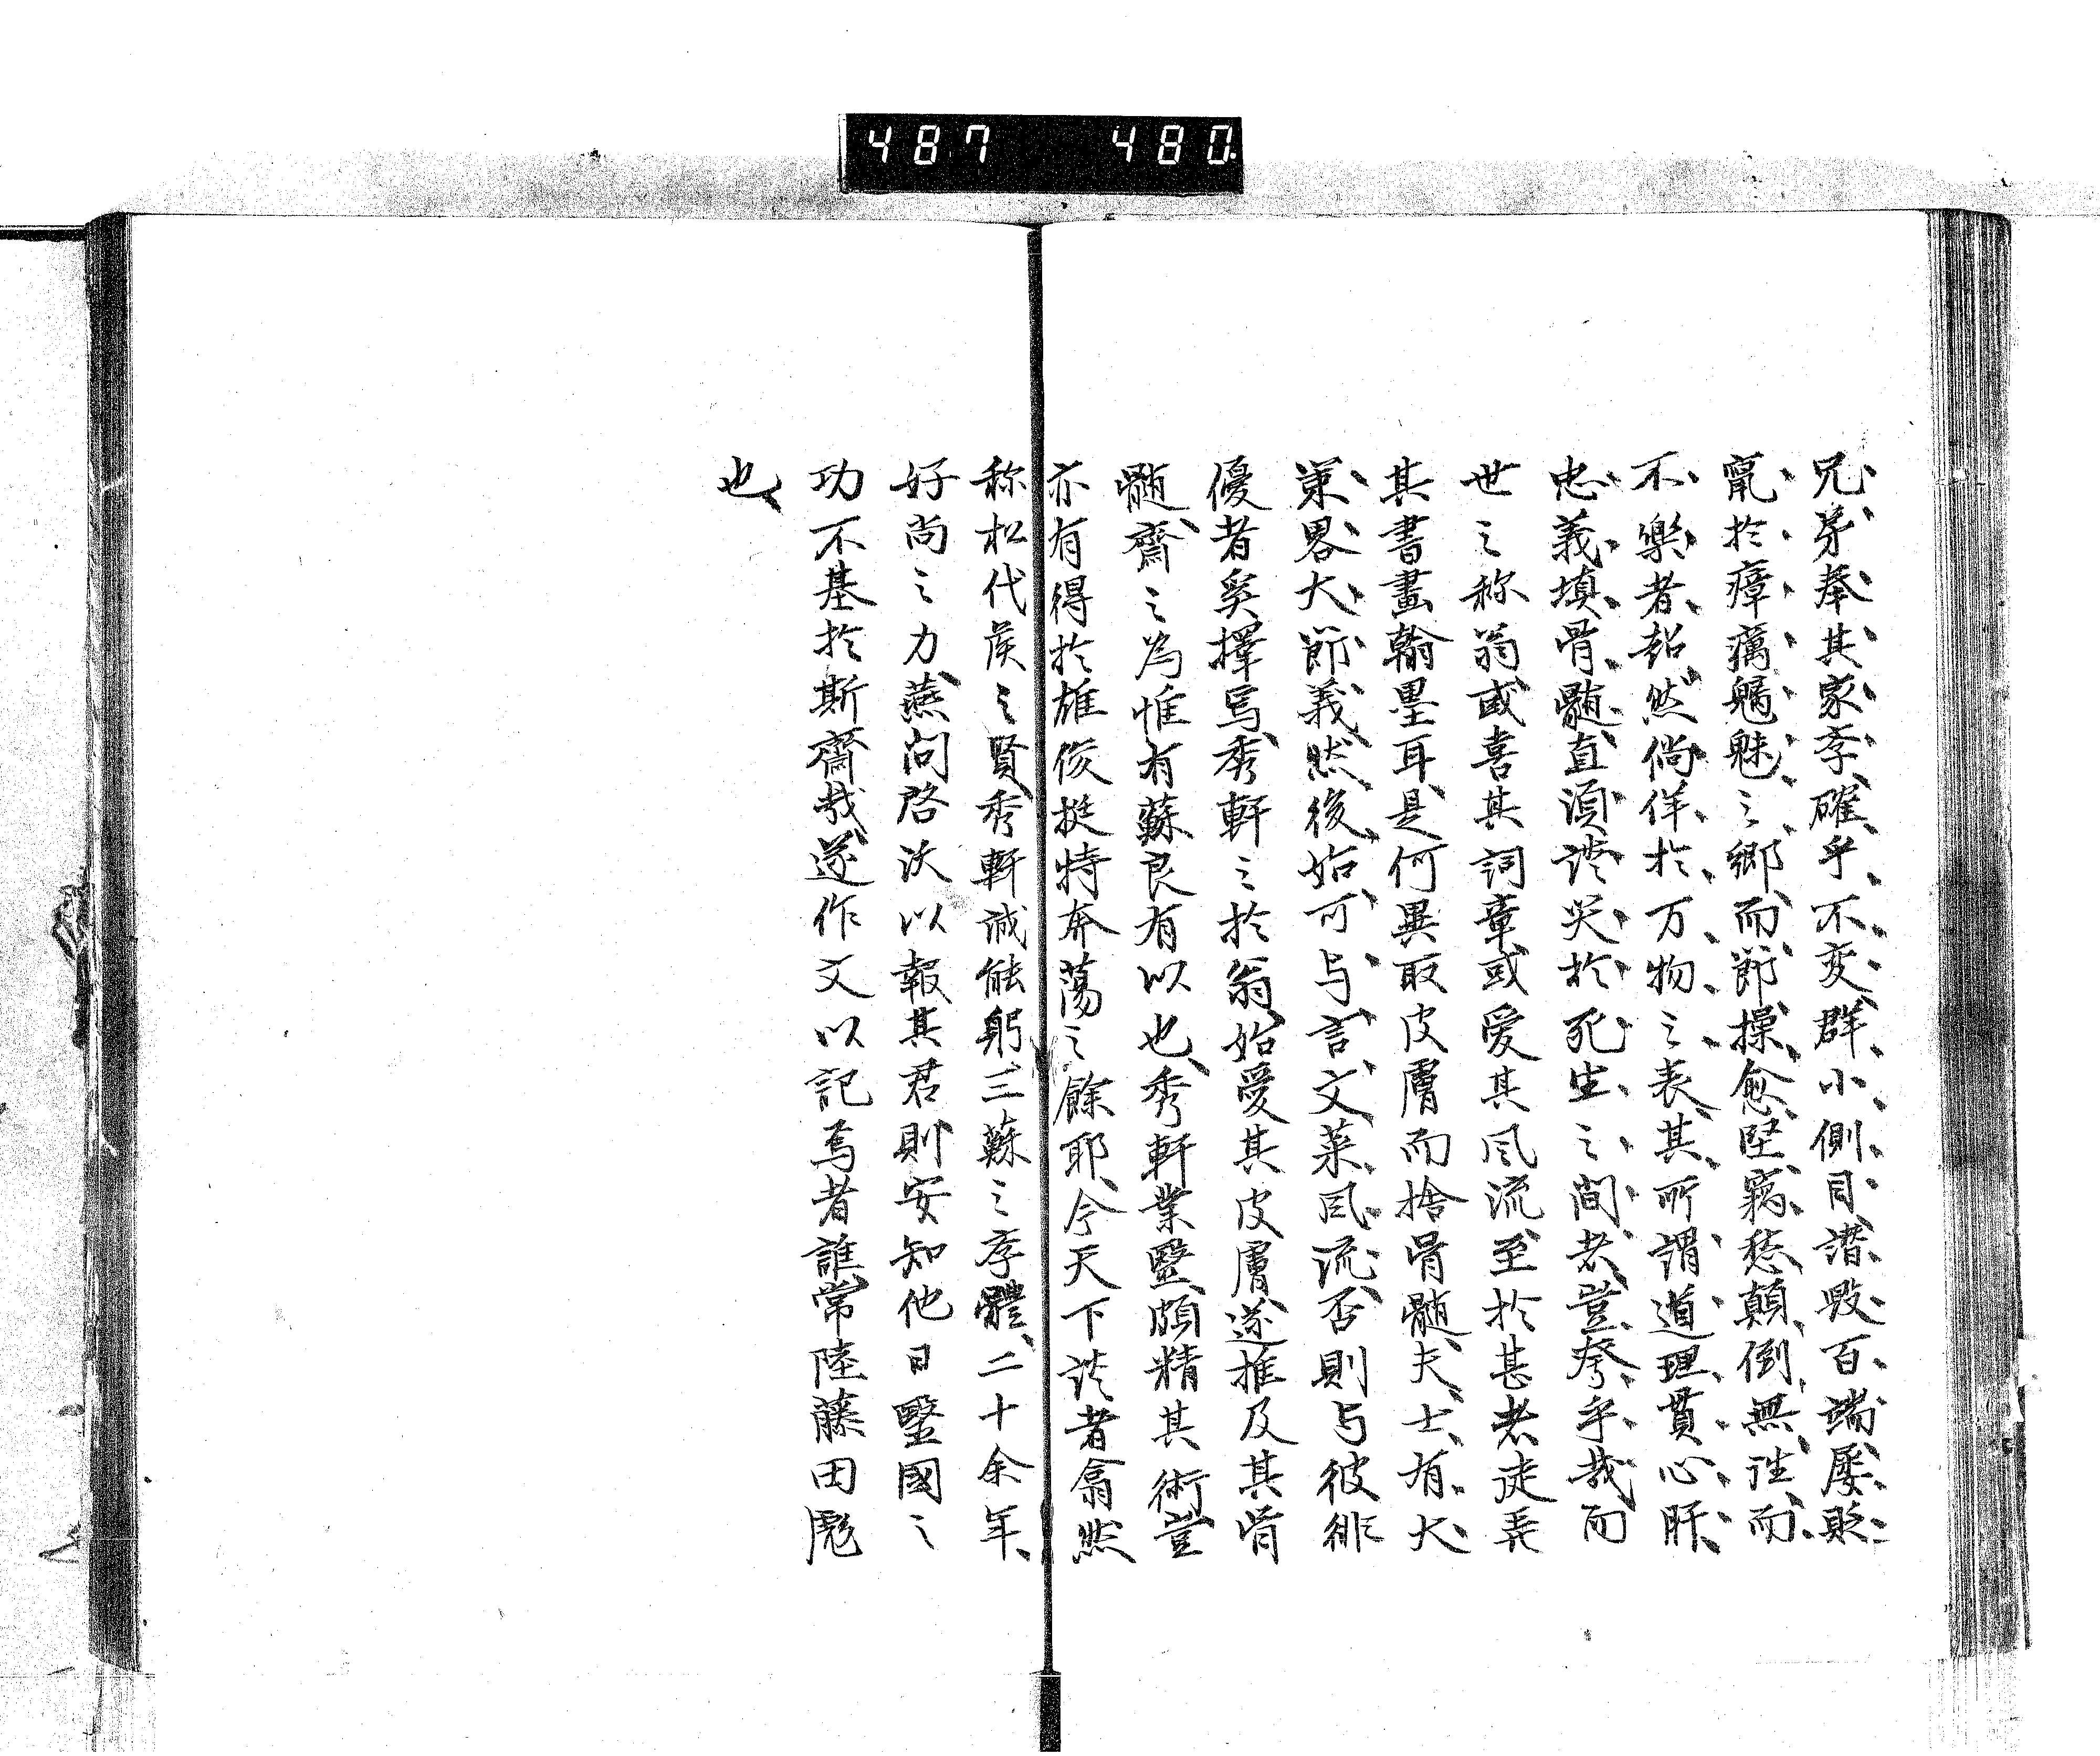 487 480.
兄弟奉其家学、確乎不変、群小側目、譖毀百端、屡貶
竄於瘴癘魑魅之郷、而節操愈堅、窮愁顛倒無聊、而
不楽者、超然倘佯於万物之表、其所謂道理貫心肝、
忠義填骨髄、直須談笑於死生之間者、豈孬乎哉、而
世之称翁、或喜其詞章、或愛其風流、至於甚者、徒弄
其書畫翰墨耳、是何異取皮膚而捨骨髄、夫士有大
策畧大節義、然後始可与言文菜風流、否則与彼俳
優者奚擇焉、秀軒之於翁、始愛其皮膚、遂推及其骨
髄、齋之為惟有蘇、良有以也、秀軒業醫、頗精其術、豈
亦有得於雄俊挺特奔蕩之餘耶、今天下談者翕然
称松代侯之賢、秀軒誠能躬三蘇之学體、二十余年、
好尚之力、燕間啓沃、以報其君、則安知他日毉國之
功不基於斯齋哉、遂作文以記焉者誰、常陸藤田彪
也、